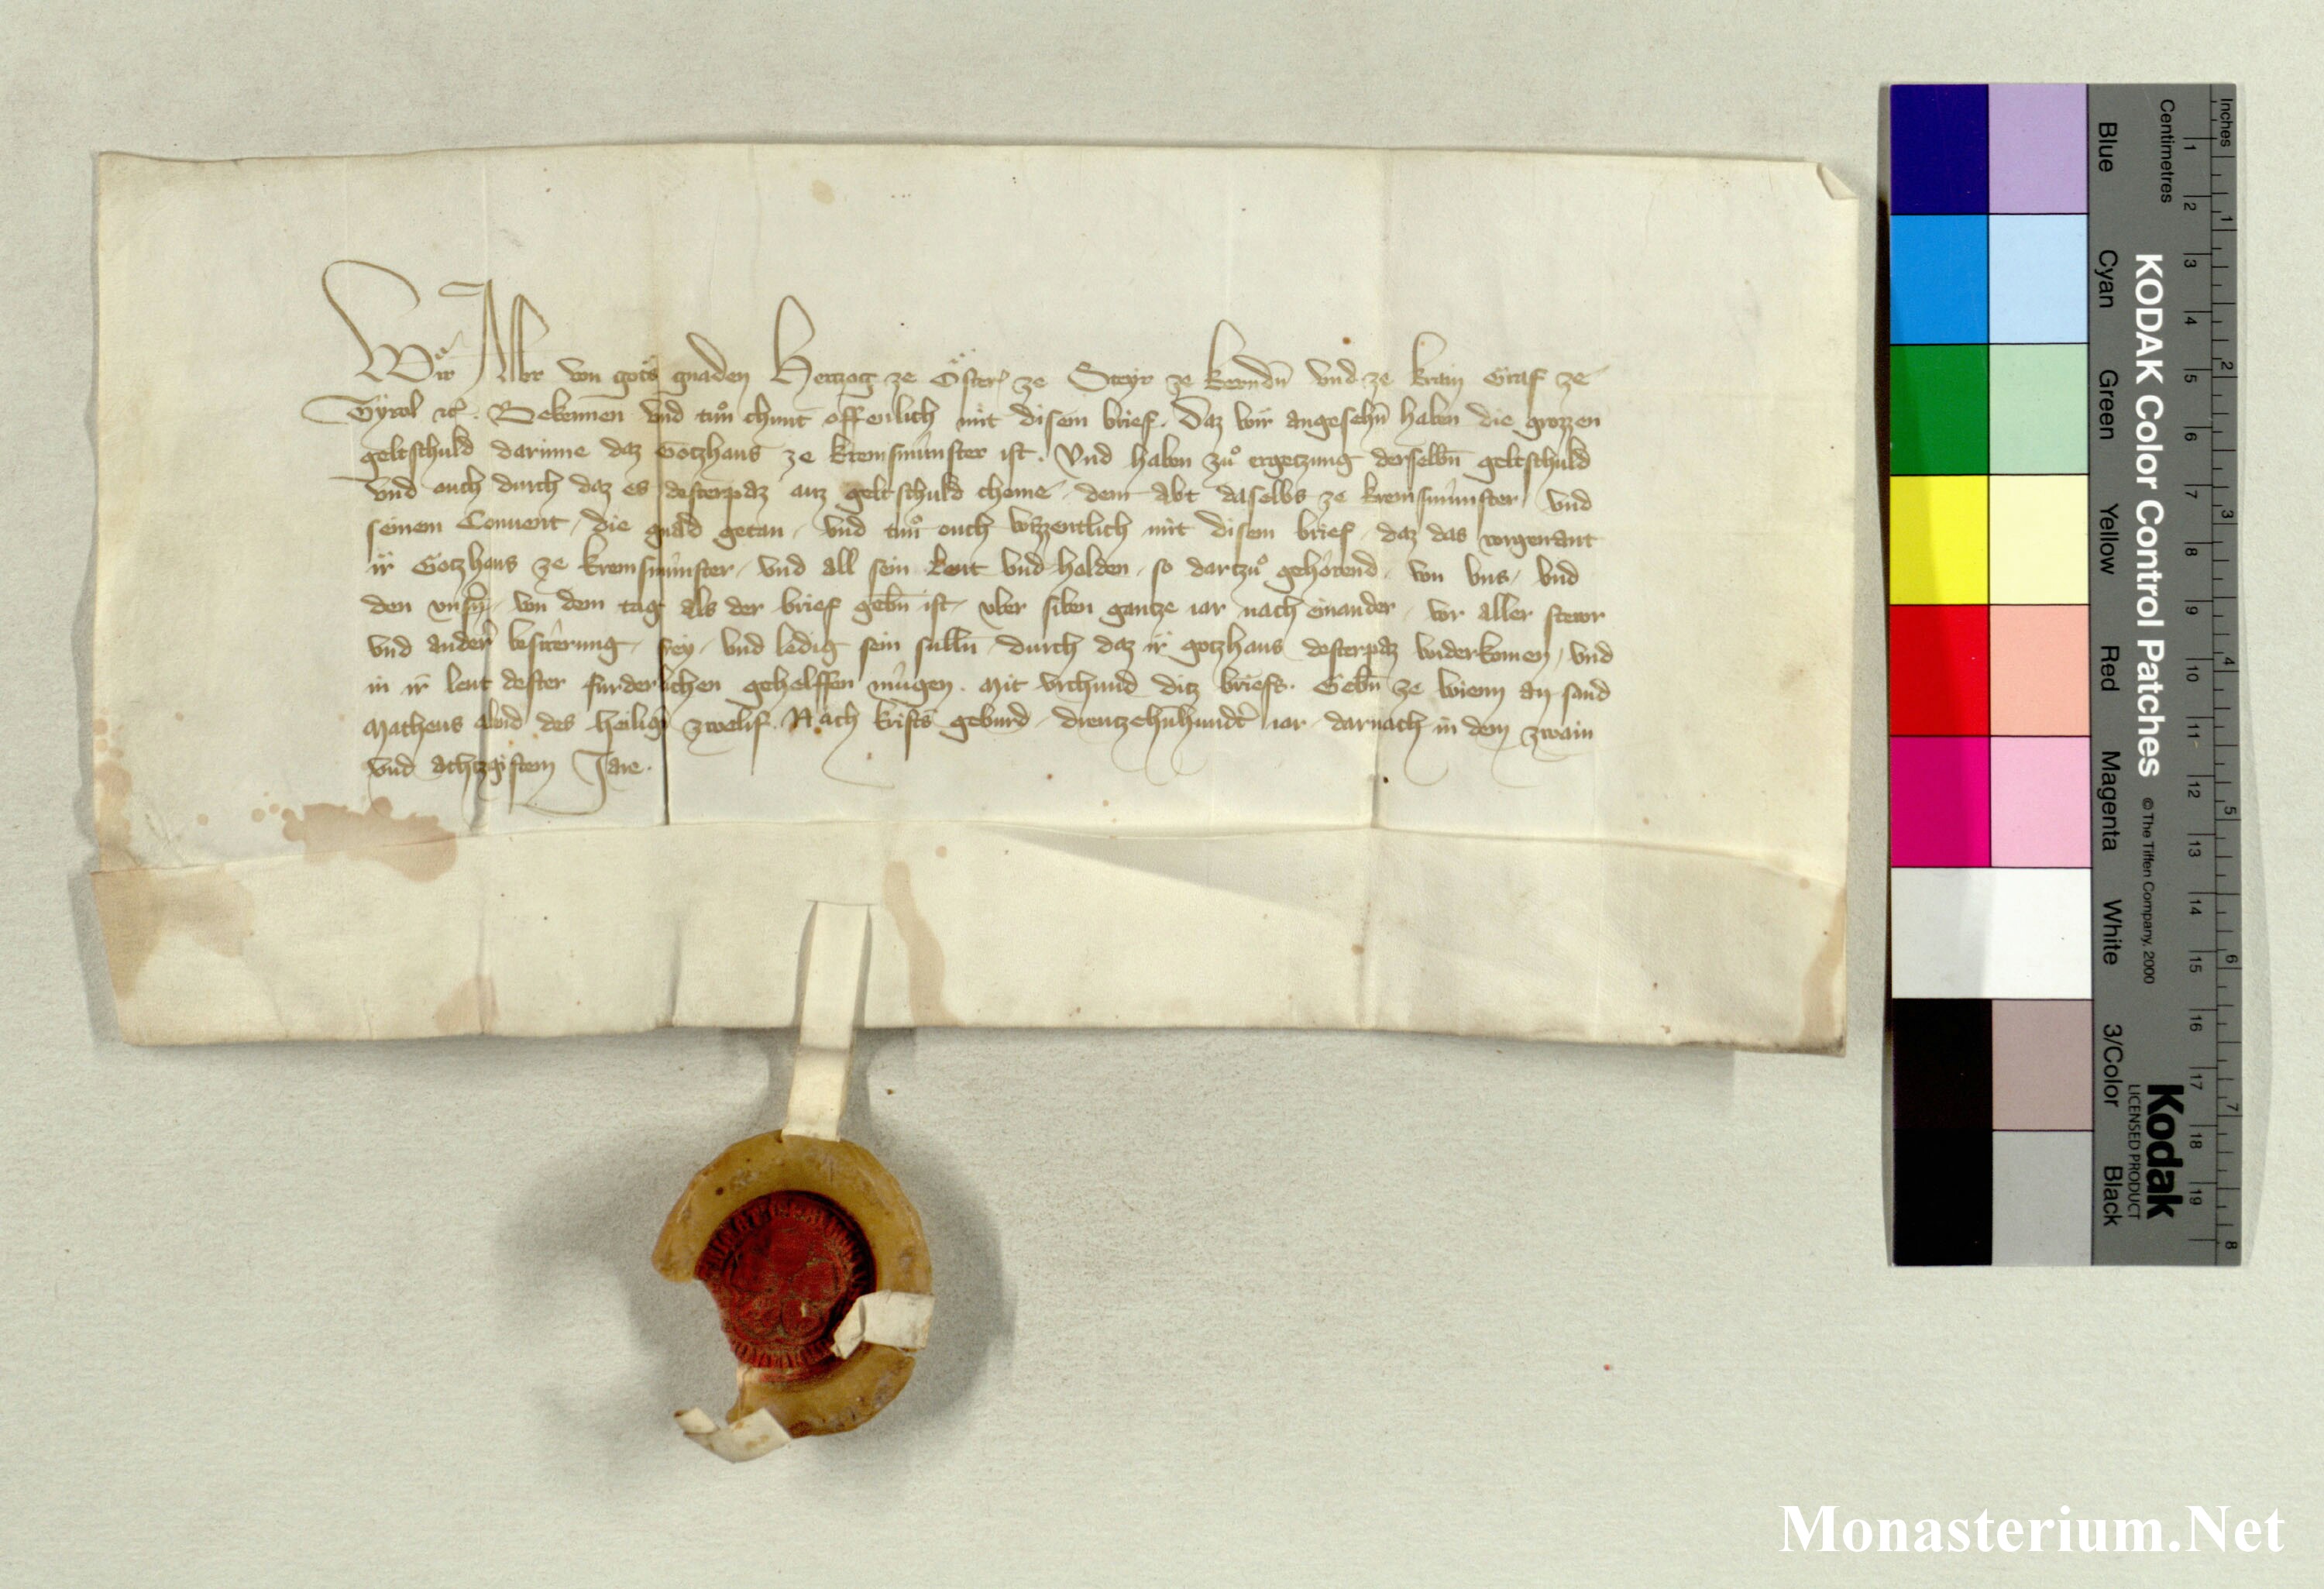 Wir Albr von gots gnaden Hertzog ze Österr ze Steyr ze kerndn̄ vnd ze krain Graf ze
Tyrol ꝛc. Bekennen vnd tůn chunt offenlich mit disem brief. Daz wir angesehn̄ haben die grozzen
geltschuld darinne daz Gotzhaus ze kremsmünster ist. Vnd haben zů ergetzung derselbn̄ geltschuld
vnd ouch durch daz es desterpaz auz geltschuld chome dem abt daselbs ze kremsmünster vnd
seinem Conuent, die gnad getan, vnd tůn ouch wizzentlich mit disem brief, daz das vorgenant
ir Gotzhaus ze kremsmünster, vnd all sein leut vnd holden, so dartzů gehörend, von vns, vnd
den vnsn̄, von dem tag als der brief gebn̄ ist, vber siben gantze iar nach einander, vor aller stewr
vnd ander vnd ledig sein sulln̄ durch daz ir gotzhaus desterpaz widerkomen, vnd
in ir leut dester fürderlichen gehelffen mügen. Mit vrchund ditz briefs. Gebn̄ ze wienn an sand
Matheus abnd des heilign̄ zwelif. Nach krists geburd dreutzehnhundt iar darnach in dem zwain
vnd achtzgistem Jare.
Inches
Centimetres
1 2 3 4 5 6 7 8 9 10 11 12 13 14 15 16 17 18 19
1 2 3 4 5 6 7 8
KODAK Color Control Patches
© The Tiffen Company, 2000
Kodak
LICENSED PRODUCT
Blue Cyan Green Yellow Red Magenta White 3/Color Black
Monasterium.Net